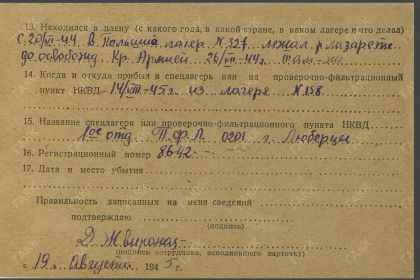 13. Находился в плену (с какого года, в какой стране, в каком лагере и что делал)
с 20/VI-44 в Польша лагер. N 327 лежал в лазарете
до освобожд. Кр. Армией 26/VII-44г. там-же
14. Когда и откуда прибыл в спецлагерь или на проверочно-фильтрационный
пункт НКВД 14/VIII-45 г. из лагеря N 158
15. Название спецлагеря или проверочно-фильтрационного пункта НКВД
1ое отд. П.Ф.Л. 0201 г. Люберцы
16. Регистрационный номер 8642
17. Дата и место убытия
Правильность записанных на меня сведений
подтверждаю
(подпись)
(подпись сотрудника, заполнившего карточку)
« 19 » Августа 1945 г.